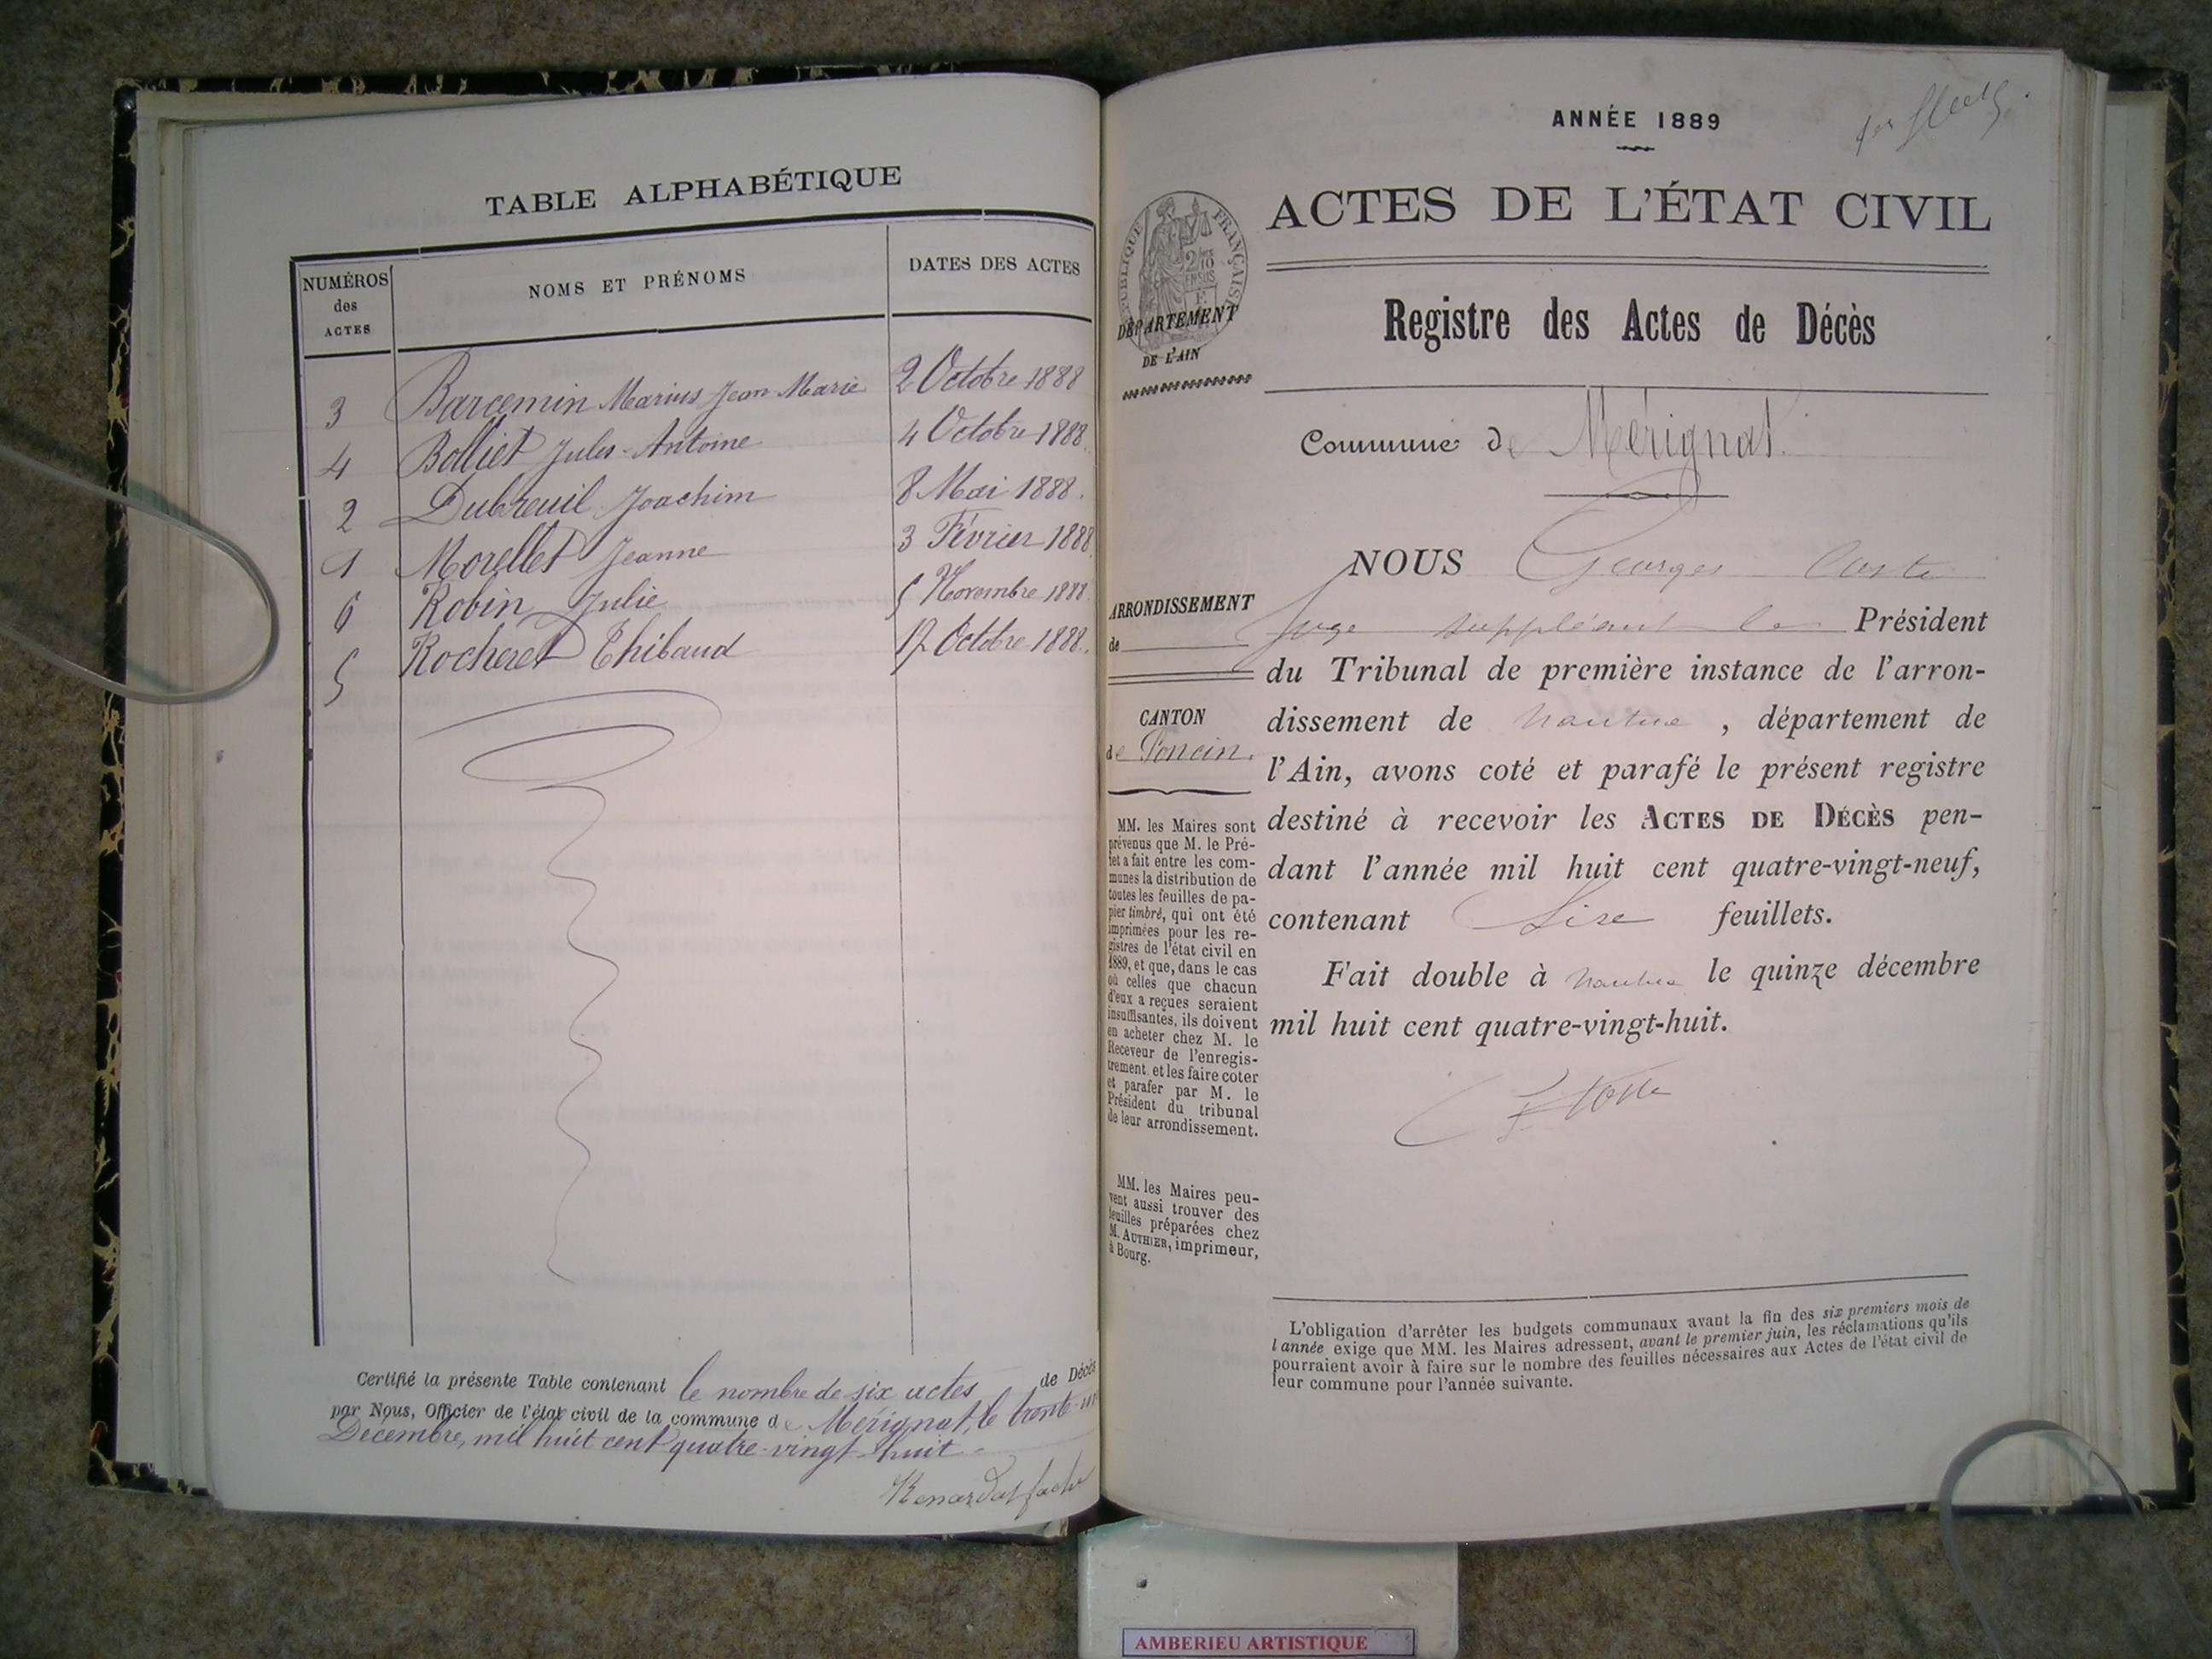 TABLE ALPHABÉTIQUE
NUMÉROS des ACTES
NOMS ET PRÉNOMS
DATES DES ACTES
3 Barcemin Marius Jean Marie 2 Octobre 1888
4 Bolliet Jules-Antoine 4 Octobre 1888
2 Dubreuil Joachim 8 Mai 1888.
1 Morellet Jeanne 3 Février 1888
6 Robin Julie 5 Novembre 1888
5 Rocheret Thibaud 17 Octobre 1888.
Certifié la présente Table contenant le nombre de six actes de Décès
par Nous, Officier de l'état civil de la commune de Mérignat, le trente-un
Décembre, mil huit cent quatre-vingt-huit
ANNÉE 1889
ACTES DE L'ÉTAT CIVIL
RÉPUBLIQUE FRANÇAISE
2/10 EN SUS
DÉPARTEMENT
DE L'AIN
Registre des Actes de Décès
Commune de Mérignat.
ARRONDISSEMENT
de
CANTON
de Poncin.
MM. les Maires sont
prévenus que M. le Pré-
fet a fait entre les com-
munes la distribution de
toutes les feuilles de pa-
pier timbré, qui ont été
imprimées pour les re-
gistres de l'état civil en
1889, et que, dans le cas
où celles que chacun
d'eux a reçues seraient
insuffisantes, ils doivent
en acheter chez M. le
Receveur de l'enregis-
trement et les faire coter
et parafer par M. le
Président du tribunal
de leur arrondissement.
MM. les Maires peu-
vent aussi trouver des
feuilles préparées chez
M. AUTHIER, imprimeur,
à Bourg.
NOUS Georges
Juge suppléant le Président
du Tribunal de première instance de l'arron-
dissement de Nantua, département de
l'Ain, avons coté et parafé le présent registre
destiné à recevoir les ACTES DE DÉCÈS pen-
dant l'année mil huit cent quatre-vingt-neuf,
contenant Six feuillets.
Fait double à Nantua le quinze décembre
mil huit cent quatre-vingt-huit.
L'obligation d'arrêter les budgets communaux avant la fin des six premiers mois de
l'année exige que MM. les Maires adressent, avant le premier juin, les réclamations qu'ils
pourraient avoir à faire sur le nombre des feuilles nécessaires aux Actes de l'état civil de
leur commune pour l'année suivante.
AMBERIEU ARTISTIQUE